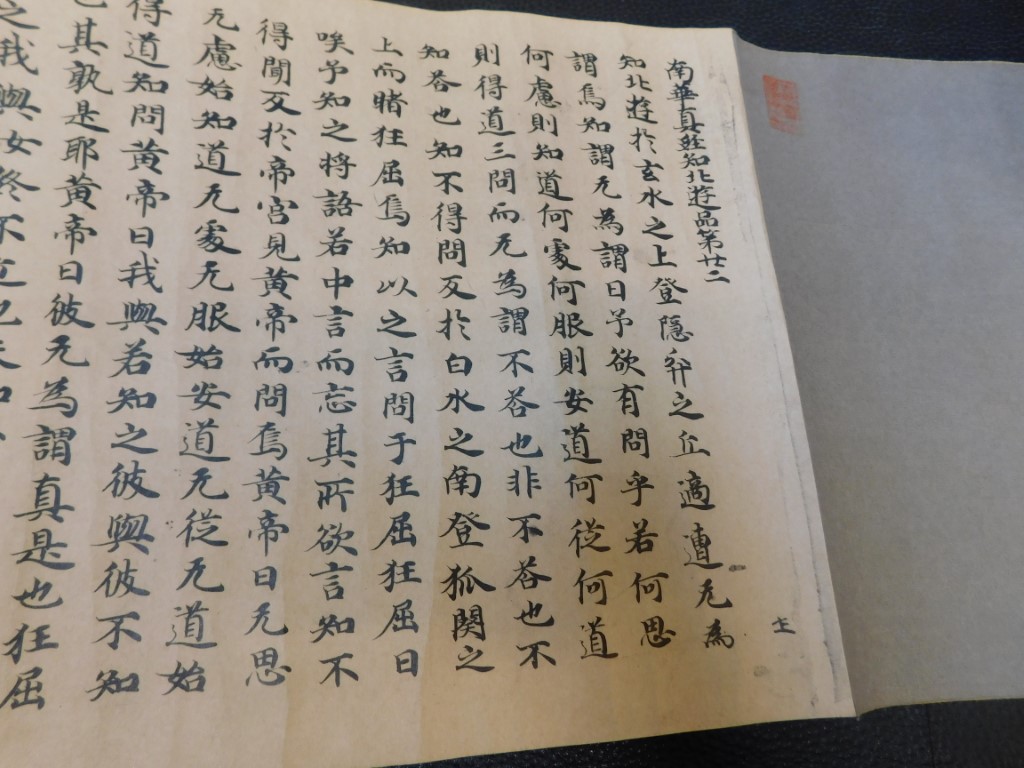 南華真經知北遊品第廿二
知北遊於玄水之上登隱弅之丘適遭无為
謂焉知謂无為謂曰予欲有問乎若何思
何慮則知道何處何服則安道何從何道
則得道三問而无為謂不荅也非不荅也不
知荅也知不得問反於白水之南登狐闋之
上而睹狂屈焉知以之言問于狂屈狂屈曰
唉予知之將語若中言而忘其所欲言知不
得問反於帝宮見黃帝而問焉黃帝曰无思
无慮始知道无處无服始安道无從无道始
得道知問黃帝曰我與若知之彼與彼不知
也其孰是耶黃帝曰彼无為謂真是也狂屈
之我與女終不